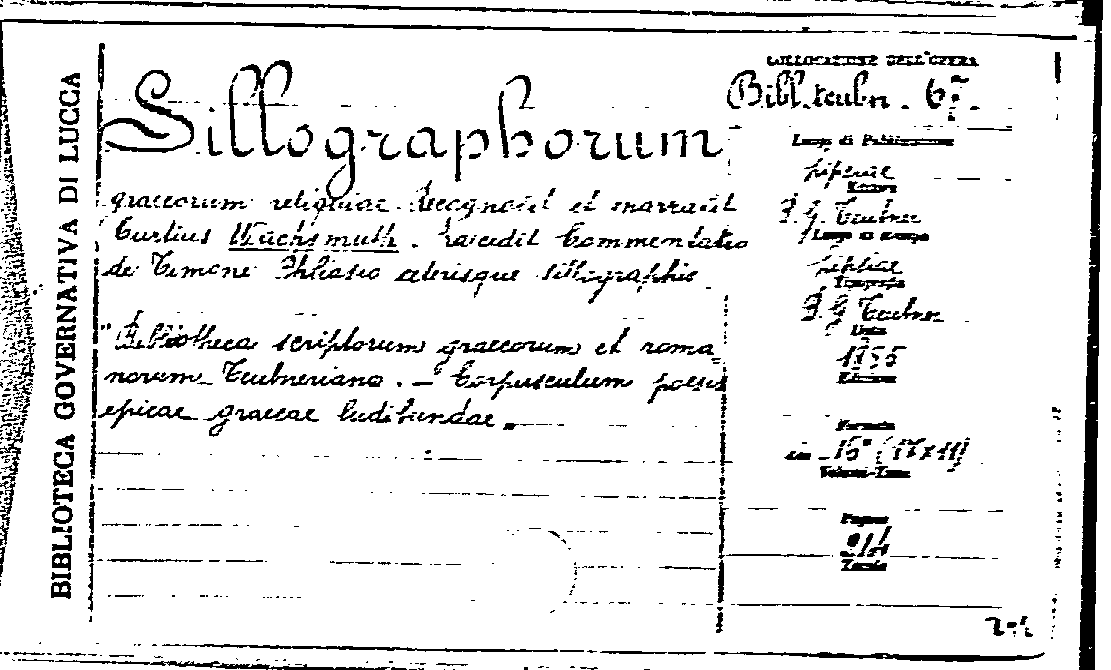 BIBLIOTECA GOVERNATIVA DI LUCCA
COLLOCAZIONE DELL'OPERA
Bibl. teubn. 67
Sillographorum
graecorum reliquiae. Recognovit et enarravit
Curtius Wachsmuth. Praecedit Commentatio
de Timone Phliasio ceterisque sillographis.
"Bibliotheca scriptorum graecorum et roma
norum Teubneriana. - Corpusculum poesis
epicae graecae ludibundae.
Luogo di Pubblicazione
Lipsiae
Editore
B. G. Teubner
Luogo di stampa
Lipsiae
Tipografia
B. G. Teubner
Data
Edizione
Formato
in - 16° (17x11)
Volumi-Tomi
Pagine
Tavole